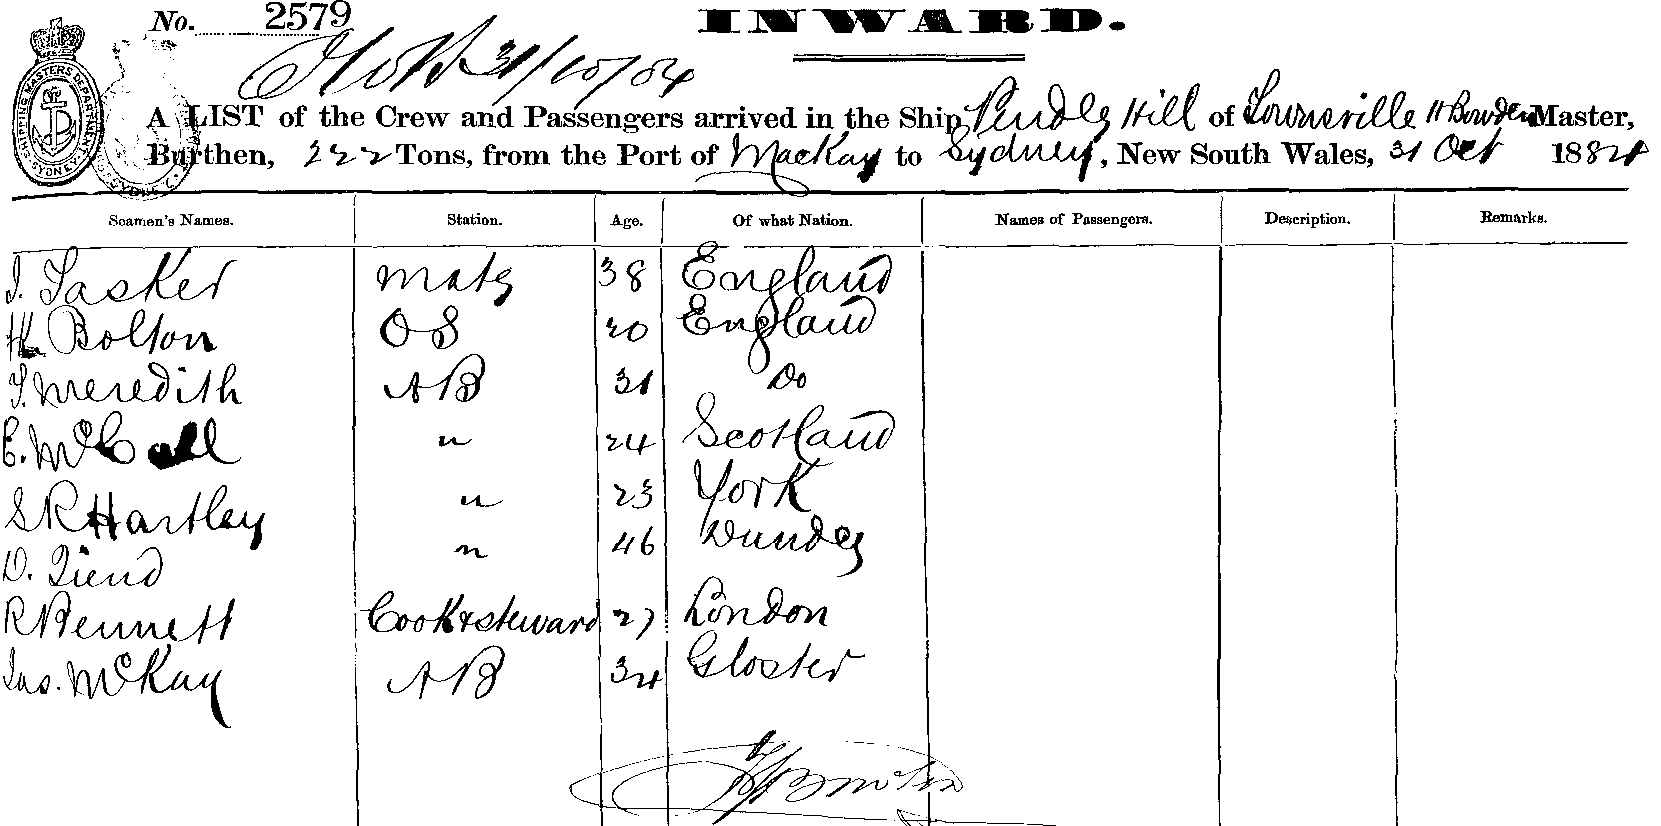 No. 2579
INWARD.
31/10/84
A LIST of the Crew and Passengers arrived in the Ship Pendle Hill of Townsville H Bowden Master,
Burthen, 222 Tons, from the Port of Mackay to Sydney, New South Wales, 31 Oct 1884
SHIPPING MASTERS DEPARTMENT SYDNEY
Seamen's Names. Station. Age. Of what Nation. Names of Passengers. Description. Remarks.
J. Tasker Mate 38 England
Bolton OS 20 England
T. Meredith AB 31 Do
E. McCall " 24 Scotland
S R Hartley " 23 York
D. " 46 Dundee
R Bennett Cook & steward 27 London
Jas. McKay AB 34 Gloster
H Bowden